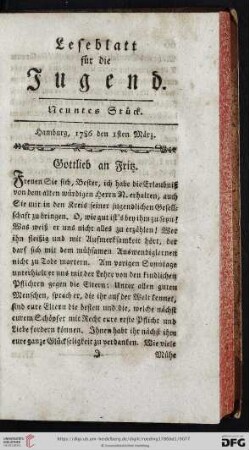 Leseblatt
für die
Jugend.
Neuntes Stück.
Hamburg, 1786 den 1sten März.
Gottlieb an Fritz.
Freuen Sie sich, Bester, ich habe die Erlaubniß
von dem alten würdigen Herrn N. erhalten, auch
Sie mit in den Kreis seiner jugendlichen Gesell-
schaft zu bringen. O, wie gut ist's bey ihm zu seyn!
Was weiß er uns nicht alles zu erzählen! Wer
ihn fleißig und mit Aufmerksamkeit hört, der
darf sich mit dem mühsamen Auswendiglernen
nicht zu Tode martern. Am vorigen Sonntage
unterhielt er uns mit der Lehre von den kindlichen
Pflichten gegen die Eltern: Unter allen guten
Menschen, sprach er, die ihr auf der Welt kennet,
sind eure Eltern die besten und die, welche nächst
eurem Schöpfer mit Recht eure erste Pflicht und
Liebe fordern können. Ihnen habt ihr nächst ihm
eure ganze Glückseligkeit zu verdanken. Wie viele
J
Mühe
UNIVERSITÄTS-
BIBLIOTHEK
HEIDELBERG
DFG